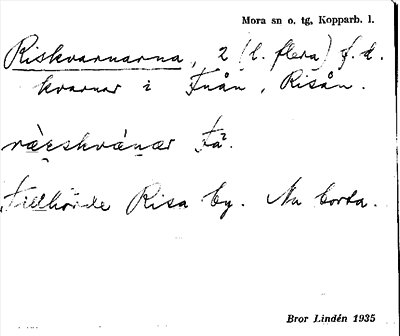 Mora sn o. tg, Kopparb. l.
Riskvarnarna, 2 (l. flera) f. d.
kvarnar i Fnån, Risån.
Tillhörde Risa by. Nu borta.
Bror Lindén 1935